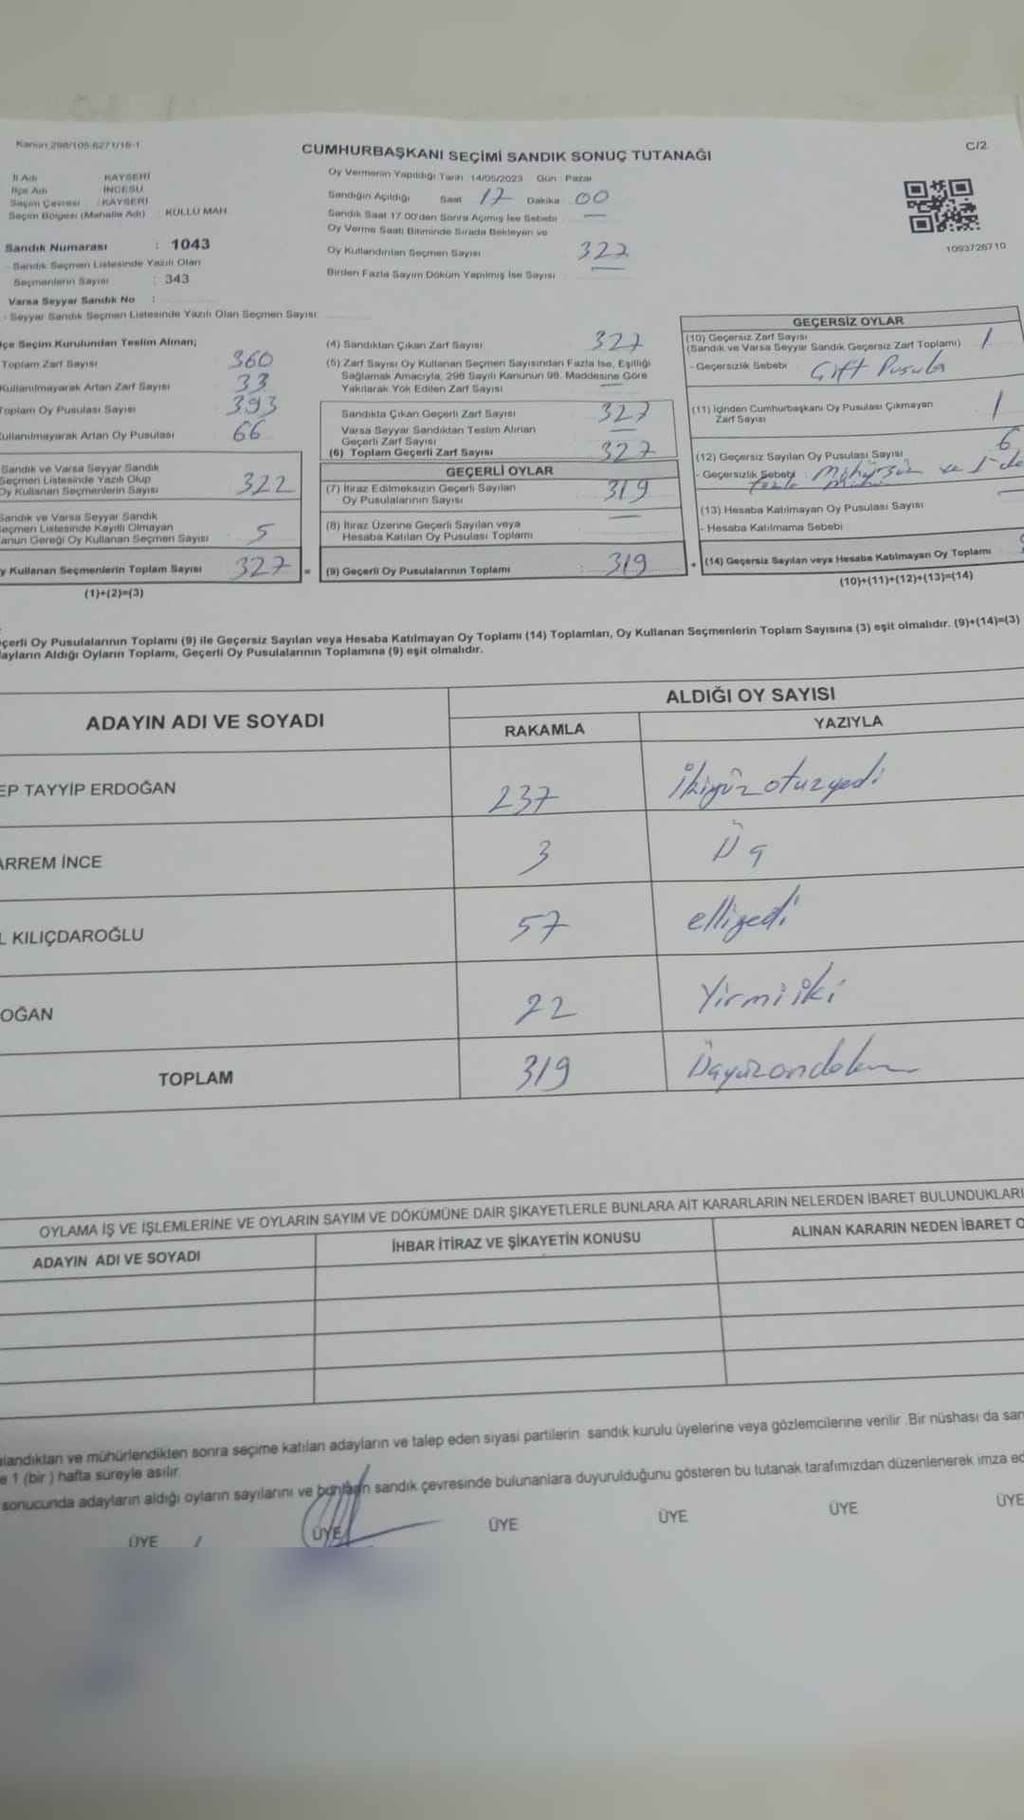 Kanun 298/105-6271/16-1
C/2
CUMHURBAŞKANI SEÇİMİ SANDIK SONUÇ TUTANAĞI
İl Adı : KAYSERİ
İlçe Adı : İNCESU
Seçim Çevresi : KAYSERİ
Seçim Bölgesi (Mahalle Adı) : KÜLLÜ MAH
Sandık Numarası : 1043
Sandık Seçmen Listesinde Yazılı Olan
Seçmenlerin Sayısı : 343
Varsa Seyyar Sandık No :
- Seyyar Sandık Seçmen Listesinde Yazılı Olan Seçmen Sayısı
Oy Vermenin Yapıldığı Tarih 14/05/2023 Gün : Pazar
Sandığın Açıldığı Saat 17 Dakika 00
Sandık Saat 17.00'den Sonra Açılmış İse Sebebi
Oy Verme Saati Bitiminde Sırada Bekleyen ve
Oy Kullandırılan Seçmen Sayısı 322
Birden Fazla Sayım Döküm Yapılmış İse Sayısı
1093726710
çe Seçim Kurulundan Teslim Alınan;
Toplam Zarf Sayısı 360
Kullanılmayarak Artan Zarf Sayısı 33
Toplam Oy Pusulası Sayısı 393
Kullanılmayarak Artan Oy Pusulası 66
Sandık ve Varsa Seyyar Sandık
Seçmen Listesinde Yazılı Olup
Oy Kullanan Seçmenlerin Sayısı 322
Sandık ve Varsa Seyyar Sandık
Seçmen Listesinde Kayıtlı Olmayan
anun Gereği Oy Kullanan Seçmen Sayısı 5
y Kullanan Seçmenlerin Toplam Sayısı 327 =
(1)+(2)=(3)
(4) Sandıktan Çıkan Zarf Sayısı 327
(5) Zarf Sayısı Oy Kullanan Seçmen Sayısından Fazla İse, Eşitliği
Sağlamak Amacıyla, 298 Sayılı Kanunun 98. Maddesine Göre
Yakılarak Yok Edilen Zarf Sayısı
Sandıkta Çıkan Geçerli Zarf Sayısı 327
Varsa Seyyar Sandıktan Teslim Alınan
Geçerli Zarf Sayısı
(6) Toplam Geçerli Zarf Sayısı 327
GEÇERLİ OYLAR
(7) İtiraz Edilmeksizin Geçerli Sayılan
Oy Pusulalarının Sayısı 319
(8) İtiraz Üzerine Geçerli Sayılan veya
Hesaba Katılan Oy Pusulası Toplamı
(9) Geçerli Oy Pusulalarının Toplamı : 319 +
GEÇERSİZ OYLAR
(10) Geçersiz Zarf Sayısı
(Sandık ve Varsa Seyyar Sandık Geçersiz Zarf Toplamı) 1
- Geçersizlik Sebebi Çift Pusula
(11) İçinden Cumhurbaşkanı Oy Pusulası Çıkmayan
Zarf Sayısı 1
(12) Geçersiz Sayılan Oy Pusulası Sayısı 6
- Geçersizlik Sebebi : Mühürsüz ve 1'de
fazla
(13) Hesaba Katılmayan Oy Pusulası Sayısı
- Hesaba Katılmama Sebebi
(14) Geçersiz Sayılan veya Hesaba Katılmayan Oy Toplamı
(10)+(11)+(12)+(13)=(14)
çerli Oy Pusulalarının Toplamı (9) ile Geçersiz Sayılan veya Hesaba Katılmayan Oy Toplamı (14) Toplamları, Oy Kullanan Seçmenlerin Toplam Sayısına (3) eşit olmalıdır. (9)+(14)=(3)
ayların Aldığı Oyların Toplamı, Geçerli Oy Pusulalarının Toplamına (9) eşit olmalıdır.
ADAYIN ADI VE SOYADI
ALDIĞI OY SAYISI
RAKAMLA YAZIYLA
EP TAYYİP ERDOĞAN 237 İkiyüzotuzyedi
ARREM İNCE 3 Üç
L KILIÇDAROĞLU 57 elliyedi
OĞAN 22 Yirmiiki
TOPLAM 319 Üçyüzondokuz
OYLAMA İŞ VE İŞLEMLERİNE VE OYLARIN SAYIM VE DÖKÜMÜNE DAİR ŞİKAYETLERLE BUNLARA AİT KARARLARIN NELERDEN İBARET BULUNDUKLARI
ADAYIN ADI VE SOYADI
İHBAR İTİRAZ VE ŞİKAYETİN KONUSU
ALINAN KARARIN NEDEN İBARET O
alandıktan ve mühürlendikten sonra seçime katılan adayların ve talep eden siyasi partilerin sandık kurulu üyelerine veya gözlemcilerine verilir. Bir nüshası da san
e 1 (bir) hafta süreyle asılır.
sonucunda adayların aldığı oyların sayılarını ve bunların sandık çevresinde bulunanlara duyurulduğunu gösteren bu tutanak tarafımızdan düzenlenerek imza ed
ÜYE ÜYE ÜYE ÜYE ÜYE ÜYE